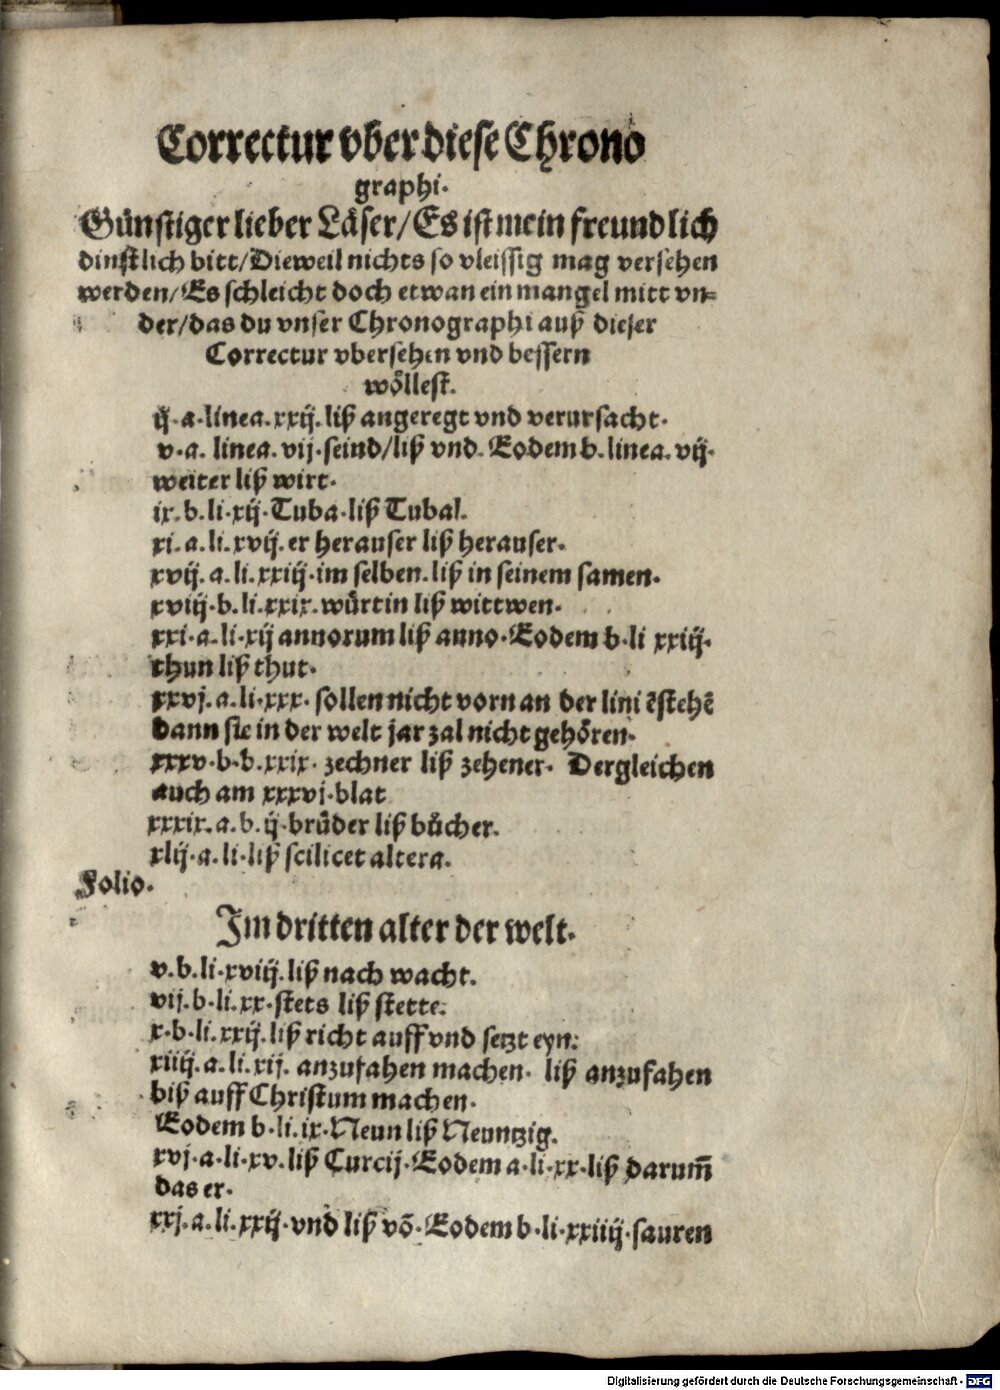 Correctur vber diese Chrono
graphi.
Günstiger lieber Läser/Es ist mein freundlich
dinstlich bitt/Dieweil nichts so vleissig mag versehen
werden/Es schleicht doch etwan ein mangel mitt vn=
der/das du vnser Chronographi auß dieser
Correctur vbersehen vnd bessern
wöllest.
ij.a.linea.xxij.liß angeregt vnd verursacht.
v.a. linea.vij.seind/liß vnd. Eodem b.linea.vij.
weiter liß wirt.
ix.b.li.xij.Tuba.liß Tubal.
xi.a.li.xvij.er herauser liß herauser.
xvij.a.li.xxiij.im selben.liß in seinem samen.
xviij.b.li.xxix.würtin liß wittwen.
xxi.a.li.xij annorum liß anno.Eodem b.li xxiij.
thun liß thut.
xxvj.a.li.xxx. sollen nicht vorn an der lini ẽstehẽ
dann sie in der welt jar zal nicht gehören.
xxxv.b.b.xxix. zechner liß zehener. Dergleichen
auch am xxxvj.blat
xxxix.a.b.ij.brüder liß bücher.
xlij.a.li.liß scilicet altera.
Folio.
Im dritten alter der welt.
v.b.li.xviij.liß nach wacht.
vij.b.li.xx.stets liß stette.
x.b.li.xxij.liß richt auff vnd setzt eyn.
xiiij.a.li.xij. anzufahen machen. liß anzufahen
biß auff Christum machen.
Eodem b.li.ix.Neun liß Neuntzig.
xvj.a.li.xv.liß Curcij.Eodem a.li.xx.liß darum̃
das er.
xxj.a.li.xxij.vnd liß võ.Eodem b.li.xxiiij.sauren
Digitalisierung gefördert durch die Deutsche Forschungsgemeinschaft - DFG